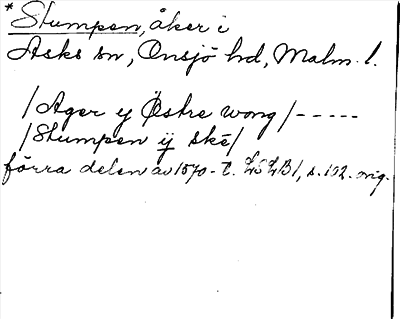 * Stumpen, åker i
Asks sn, Onsjö hd, Malm. l.
/Ager y Østre wong/-----
/Stumpen ÿ skè/
förra delen av 1570-t. LSLB1, s. 102. orig.